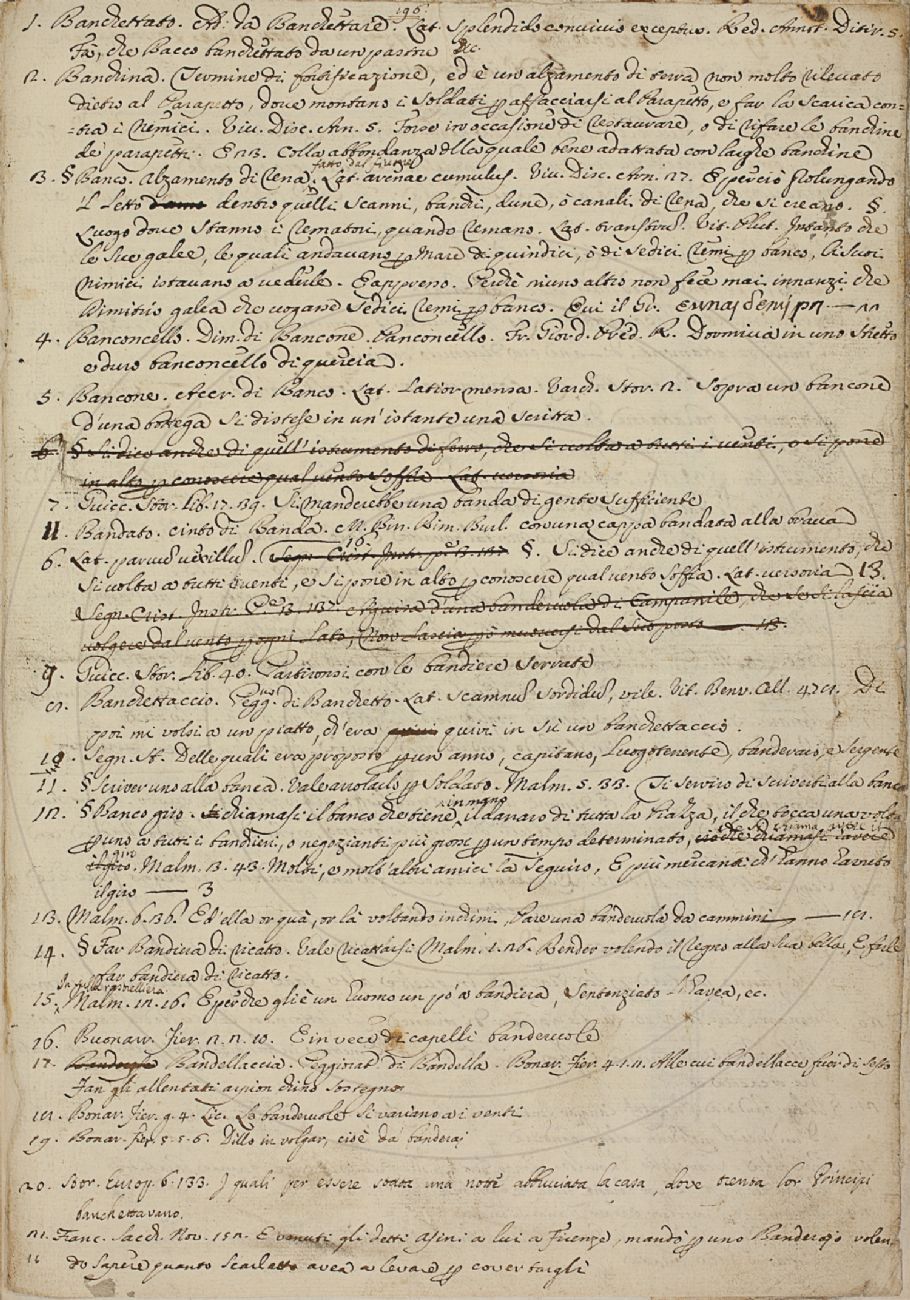 1. Banchettato. Add. da Banchettare. Lat. Splendido convivio exceptus. Red. Annot. Ditir. 5.
Fa, che Bacco banchettato da un pastore &c.
2. Banchina. Termine di fortificazione, ed è un alzamento di terra non molto rilevato
dietro al Parapetto, dove montano i Soldati p affacciarsi al Parapetto, e far la scarica con=
=tra i Nemici. Viv. Disc. Arn. 5. Forse in occasione di restaurare, o di rifare le banchine
de' parapetti. E 23. Colla abbondanza della quale bene adattata con larghe banchine
3. § Banco. Alzamento di Rena, fatto dal fiume Lat. arenae cumulus. Viv. Disc. Arn. 27. E perciò prolungando
'l letto dentro quelli Scanni, banchi, dune, o canali di Rena, che si creano. §.
Luogo dove stanno i Rematori, quando Remano. Lat. transtrum. Vit. Plut. Intanto che
le sue galee, le quali andavano p Mare di quindici, o di sedici Remi p banco, li suoi
nimici istavano a vedere. E appresso. Perchè niuno altro non fece mai innanzi che
Dimitrio galea che vogasse sedici Remi p banco. Qui il Gr.
4. Banconcello. Dim. di Bancone. Panconcello. Fr. Giord. Pred. R. Dormiva in uno stretto
e duro banconcello di quercia.
5. Bancone. Accr. di Banco. Lat. Latior mensa. Varch. Stor. 2. Sopra un bancone
d'una bottega si distese in un'istante una scritta.
6. § Si dice anche di quell'istrumento di ferro, che si volta a tutti i venti, e si pone
in alto p conoscere qual vento soffia. Lat. versoria
7. Guicc. Stor. lib. 17. 39. Si manderebbe una banda di gente sufficiente
11. Bandato. cinto di Banda. M. Bin. Rim. Burl. con una cappa bandata alla brava
6. Lat. parvum vexillum. §. Si dice anche di quell'istrumento, che
si volta a tutti i venti, e si pone in alto p conoscere qual vento soffia. Lat. versoria 13.
Segn. Crist. Instr. e figura d'una banderuola di Campanile, che se si lascia
volgere dal vento p ogni lato, non lascia però muoversi dal suo posto 13.
9. Guicc. Stor. Lib. 40. Partironsi con le bandiere serrate
8. Banchettaccio. Pegg. di Banchetto. Lat. Scamnum sordidum, vile. Vit. Benv. Cell. 478. Di
poi mi volsi a un piatto, ch'era quivi in su un banchettaccio.
10. Segn. St. Delle quali era proposto p un anno, capitano, Luogotenente, banderaio, e Sergente
11. § Scriver uno alla banca. Vale arrotarlo p Soldato. Malm. 5. 33. Ti servirò di scriverti alla banca
12. § Banco giro. chiamasi il banco che tiene in mano il danaro di tutta la Piazza, il che tocca una volta
p uno a tutti i banchieri, o negozianti più grossi p un tempo determinato,
Malm. 13. 43. Molti, e molt'altri amici la seguiro, E più mercanti ch'hanno tenuto
il giro —— 3
13. Malm. 6. 36. Ed'ella or quà, or là voltando inchini, Pare una banderuola da cammini —— 18.
14. § Far Bandiera di ricatto. Vale ricattarsi Malm. 1. 26. Render volendo il segno alla sua olla, E fare
far bandiera di ricatto.
15. Malm. 12. 16. E perchè gli è un huomo un po' a bandiera, Sentenziato l'havea, ec.
16. Buonarr. Fier. 2. 2. 10. E in vece di capelli banderuole
17. Bandellaccia. Peggiorat. di Bandella. Bonar. Fier. 4. 1. 1. Alle cui bandellacce fuor di sesto
Fan gli allentati arpion chino sostegno
18. Bonar. Fier. 9. 4. Lic. Le banderuole si variano a i venti
19. Bonar. Fier. 5. 5. 6. Dillo in volgar, cioè da banderaj
20. Stor. Europ. 6. 133. I quali per essere stata una notte abbruciata la casa, dove trenta lor Principi
banchettavano.
21. Franc. Sacch. Nov. 152. E venuti gli detti asini a lui a Firenze, mandò p uno Banderajo volen-
do sapere quanto scarlatto avea a levare p covertargli